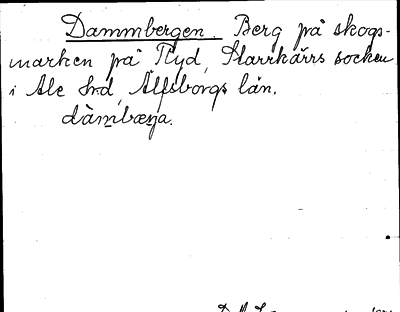 Dammbergen. Berg på skogs-
marken på Ryd, Starrkärrs socken
i Ale hrd, Älfsborgs län.
dàmbæɲa.